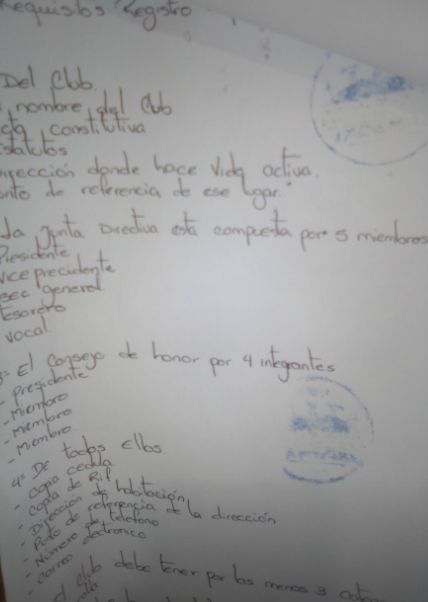 Requisitos Registro
Del Clbb.
nombre del Club
cta constitutiva
statutos
irección donde hace Vida activa.
nto de referencia de ese lugar.
la Junta Directiva está compuesta por 5 miembros
Presidente
Vice precidente
sec general
tesorero
vocal
3= El Consejo de honor por 4 integrantes
- Presidente
- Miembro
- Miembro
- Miembro
4° De todos ellos
- Copia cedula
- Copia de Rif
- Dirección de habitación
- Punto de referencia de la dirección
- Número de telefono
- Correo electronico
el club debe tener por las menos 3